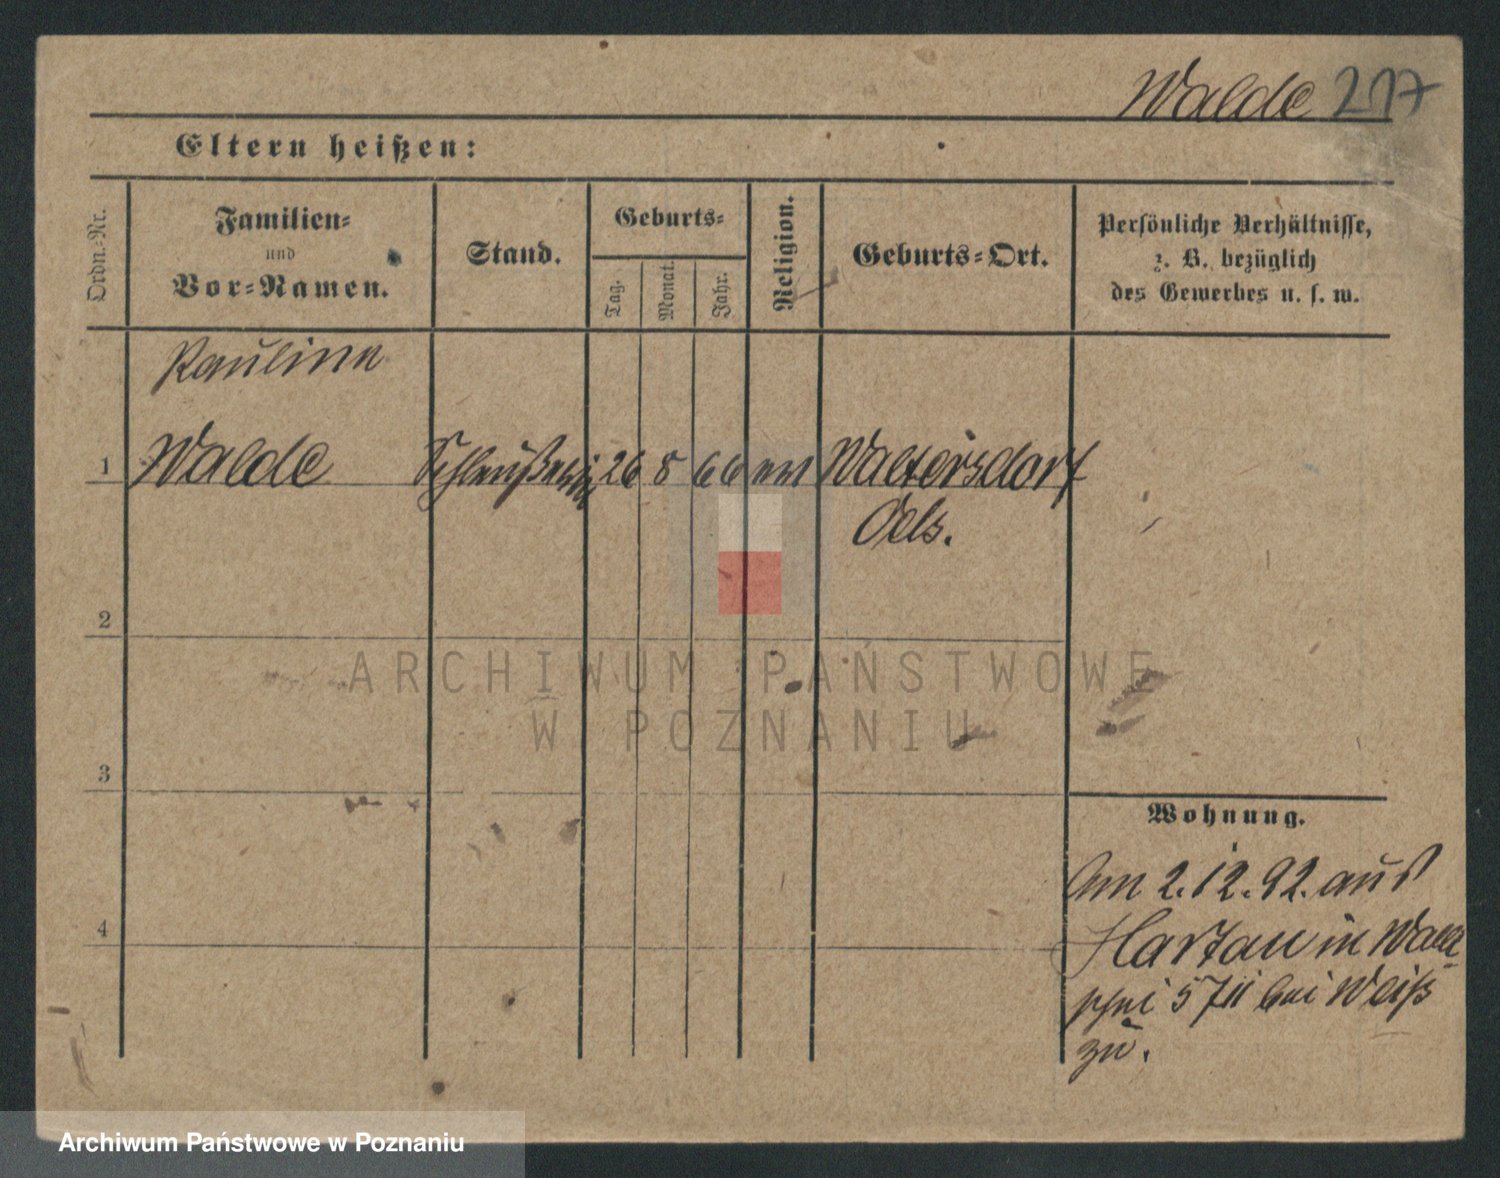 Walde 217
Eltern heißen:
Ordn.-Nr.
Familien-
und
Vor-Namen.
Stand.
Geburts-
Tag.
Monat.
Jahr.
Religion.
Geburts-Ort.
Persönliche Verhältnisse,
z. B. bezüglich
des Gewerbes u. s. w.
Pauline
1 Walde 26 8 66 Waltersdorf
Oels.
2
ARCHIWUM PAŃSTWOWE
W POZNANIU
3
Wohnung.
Am 2.12.92. aus
Hartau in
4
5 bei Weiß
zu.
Archiwum Państwowe w Poznaniu